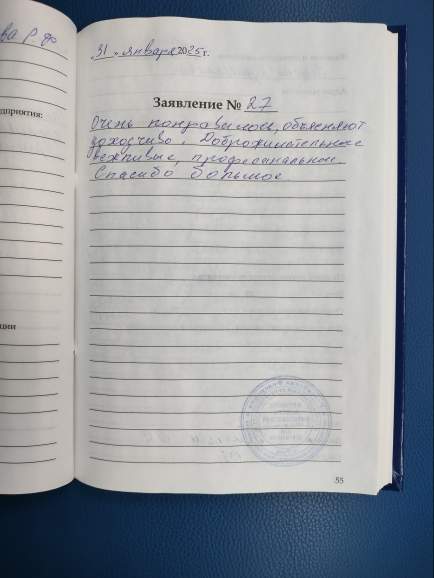 ва Р до
едприятия:
ции
„31 „ января 2025 г.
Заявление № 27
Очень понравилось, объясняют
доходчиво. Доброжелательные
вежливые, професиональные.
Спасибо большое
55